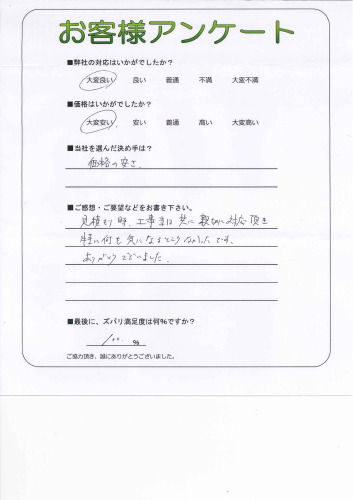 お客様アンケート
■弊社の対応はいかがでしたか？
大変良い 良い 普通 不満 大変不満
■価格はいかがでしたか？
大変安い 安い 普通 高い 大変高い
■当社を選んだ決め手は？
価格の安さ
■ご感想・ご要望などをお書き下さい。
見積もり時、工事当日共に親切に対応頂き
特に何も気になるところなかったです。
ありがとうございました。
■最後に、ズバリ満足度は何%ですか？
100. %
ご協力頂き、誠にありがとうございました。